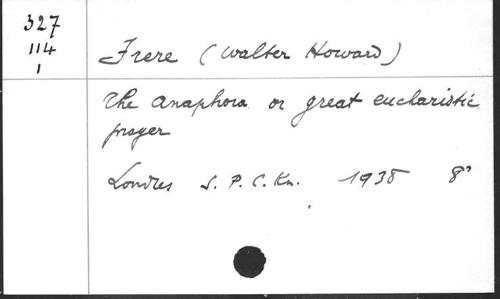 327
114
1
Frere (Walter Howard)
The anaphora or great eucharistic
prayer
Londres S. P. C. Kn. 1938 8°